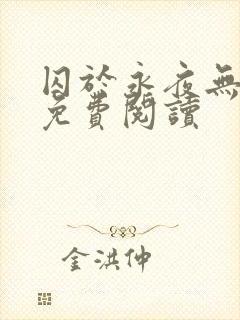 囚於永夜無
免費閱讀
金洪仲